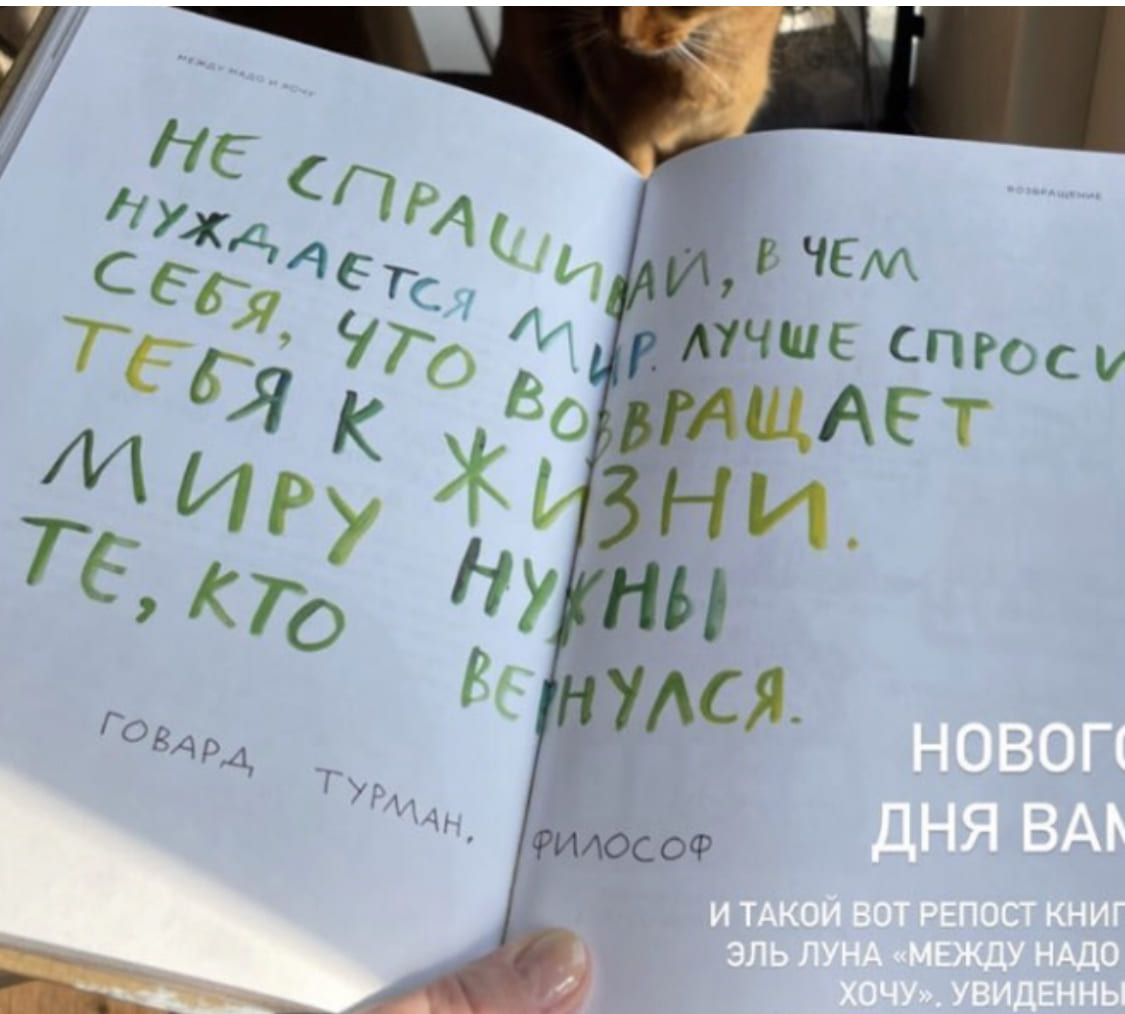 МЕЖДУ НАДО И ХОЧУ
ВОЗВРАЩЕНИЕ
НЕ СПРАШИВАЙ, В ЧЕМ
НУЖДАЕТСЯ МИР. ЛУЧШЕ СПРОСИ
СЕБЯ, ЧТО ВОЗВРАЩАЕТ
ТЕБЯ К ЖИЗНИ.
МИРУ НУЖНЫ
ТЕ, КТО ВЕРНУЛСЯ.
ГОВАРД ТУРМАН, ФИЛОСОФ
НОВОГО
ДНЯ ВАМ
И ТАКОЙ ВОТ РЕПОСТ КНИГ
ЭЛЬ ЛУНА «МЕЖДУ НАДО
ХОЧУ», УВИДЕННЫ